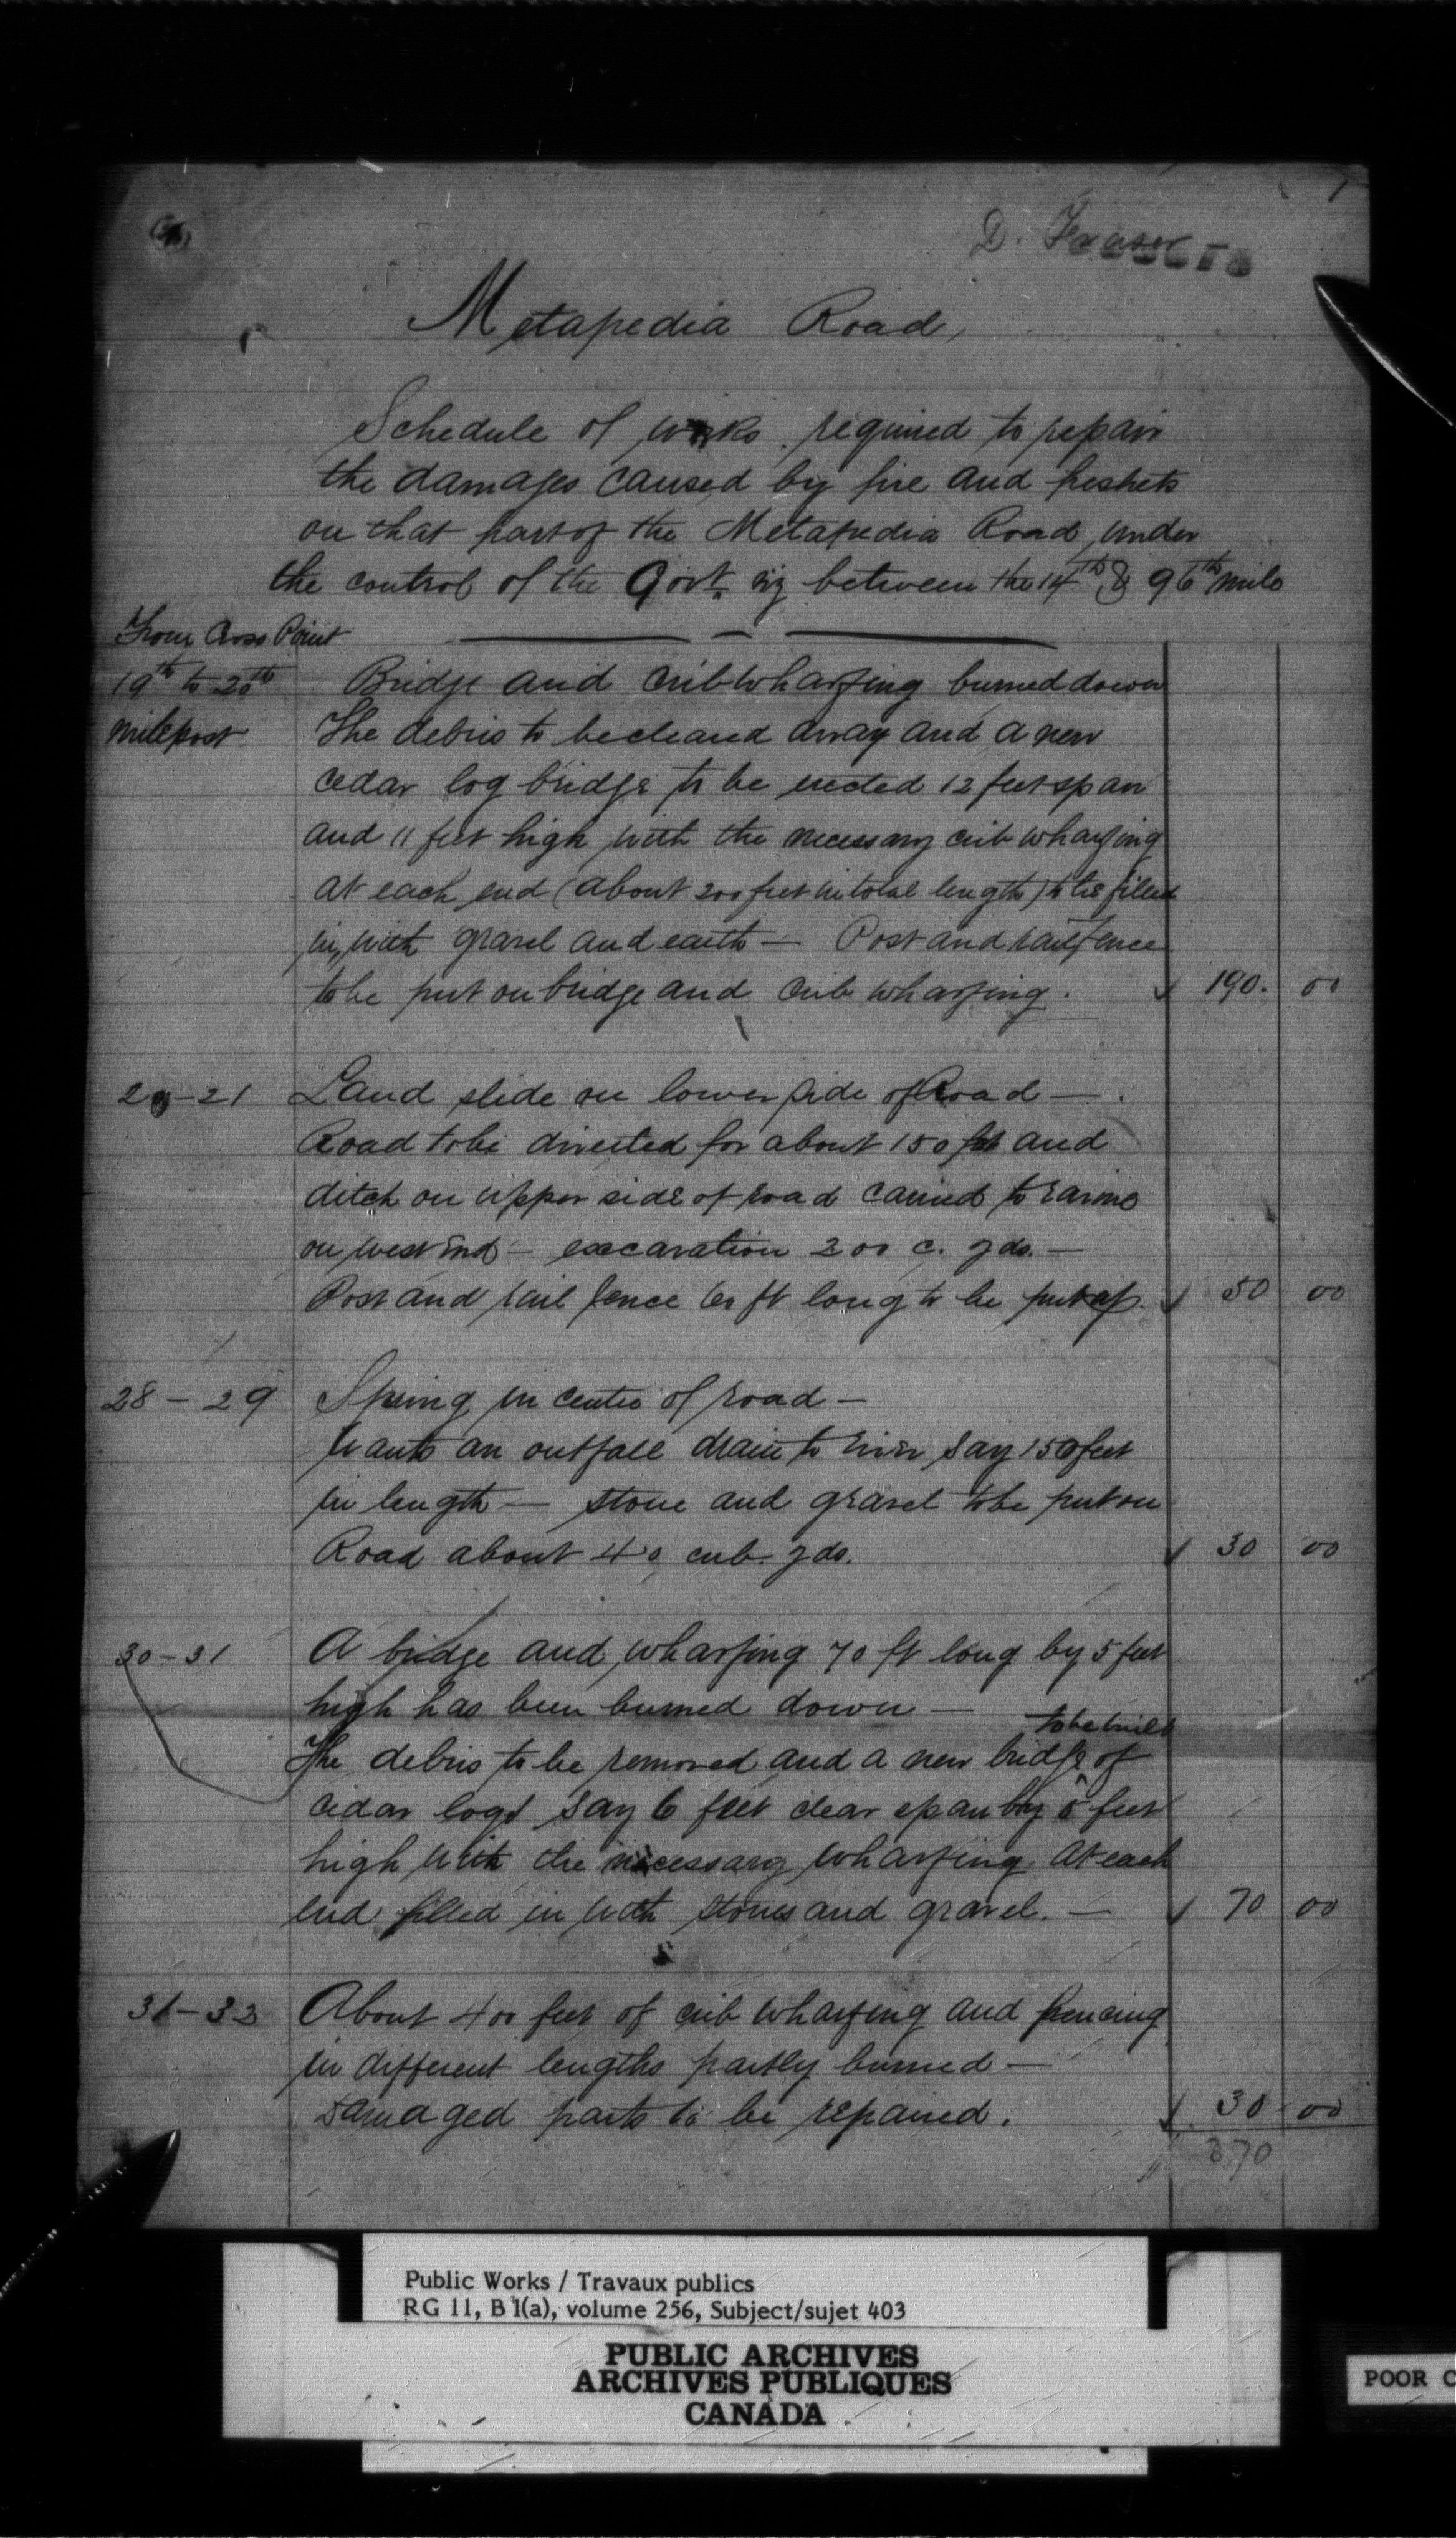 1
D. Fraser
Metapedia Road,
Schedule of works required to repair
the damages caused by fire and freshets
on that part of the Metapedia Road, under
the control of the Govt. viz between the 14th & 96th mile
From Cross Point
19th to 20th Bridge and Crib wharfing burned down
milepost The debris to be cleand away and a new
cedar log bridge to be erected 12 feet span
and 11 feet high with the necessary crib wharfing
at each end (about 200 feet in total length) to be filled
in, with gravel and earth — Post and rail fence
to be put on bridge and Crib wharfing. 190. 00
20–21 Land slide on lower side of Road —
Road to be diverted for about 150 feet and
ditch on upper side of road carried to ravine
on west End — excavation 200 c. yds. —
Post and rail fence 60 ft long to be put up. 50 00
28 – 29 Spring in centre of road —
Wants an outfall drain to river say 150 feet
in length — stone and gravel to be put on
Road about 40 cub. yds. 30 00
30–31 A bridge and wharfing 70 ft long by 5 feet
high has been burned down —
to be built
The debris to be removed and a new bridge ^ of
cedar logs say 6 feet clear span by 5 feet
high with the necessary wharfing at each
end filled in with stones and gravel. — 70 00
31–32 About 400 feet of crib wharfing and fencing
in different lengths partly burned —
Damaged parts to be repaired. 30 00
370
Public Works / Travaux publics
RG 11, B 1(a), volume 256, Subject/sujet 403
PUBLIC ARCHIVES
ARCHIVES PUBLIQUES
CANADA
POOR C